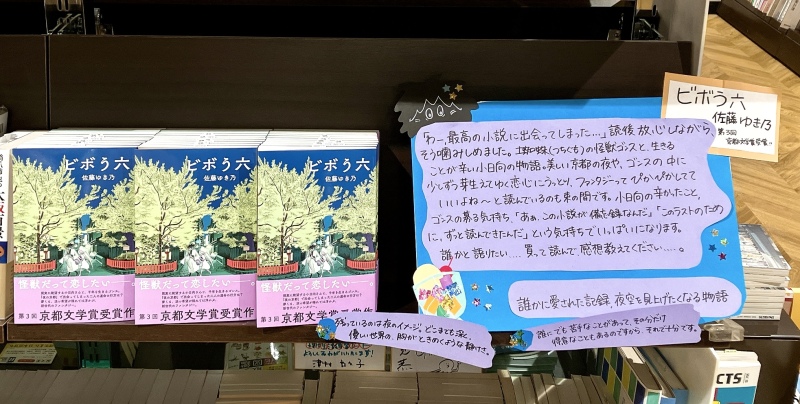 ビボう六
佐藤ゆき乃
怪獣だって恋したい
第3回 京都文学賞受賞作
ビボう六
佐藤ゆき乃
怪獣だって恋したい
第3回 京都文学賞受賞作
ビボう六
佐藤ゆき乃
怪獣だって恋したい
第3回 京都文学賞受賞作
「わー、最高の小説に出会ってしまった…」読後放心しながら、
そう噛みしめました。土蜘蛛(つちぐも)の怪獣ゴンスと、生きる
ことが辛い小日向の物語。美しい京都の夜や、ゴンスの中に
少しずつ芽生えてゆく恋心にうっとり、ファンタジーって ぴかぴかしてて
いいよね〜と読んでいるのも束の間です。小日向の辛かったこと、
ゴンスの募る気持ち、「あぁ、この小説が備忘録なんだ」「このラストのため
に、ずっと読んできたんだ」という気持ちでいっぱいになります。
誰かと語りたい…。買って読んで感想教えてください……。
誰かに愛された記録、夜空を見上げたくなる物語
残っているのは夜のイメージ。どこまでも深く、
優しい世界の、胸がときめくような静けさ。
誰にでも苦手なことがあって、その分だけ
得意なこともあるのですから。それで十分です。
ビボう六
佐藤ゆき乃
第3回
京都文学賞受賞
CTS